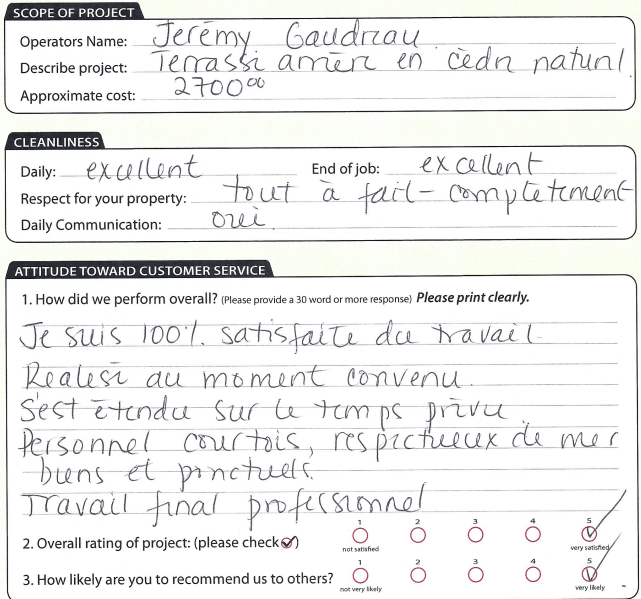 SCOPE OF PROJECT
Operators Name: Jerémy Gaudreau
Describe project: Terrassi arrière en cèdre naturel
Approximate cost: 2700⁰⁰
CLEANLINESS
Daily: excellent End of job: excellent
Respect for your property: tout à fait - complètement
Daily Communication: oui.
ATTITUDE TOWARD CUSTOMER SERVICE
1. How did we perform overall? (Please provide a 30 word or more response) Please print clearly.
Je suis 100%. satisfaite du travail.
Réalisé au moment convenu.
S'est étendu sur le temps prévu.
Personnel courtois, respectueux de mer
biens et ponctuels.
Travail final professionnel
1 2 3 4 5
2. Overall rating of project: (please check ✓)
not satisfied very satisfied
1 2 3 4 5
3. How likely are you to recommend us to others?
not very likely very likely